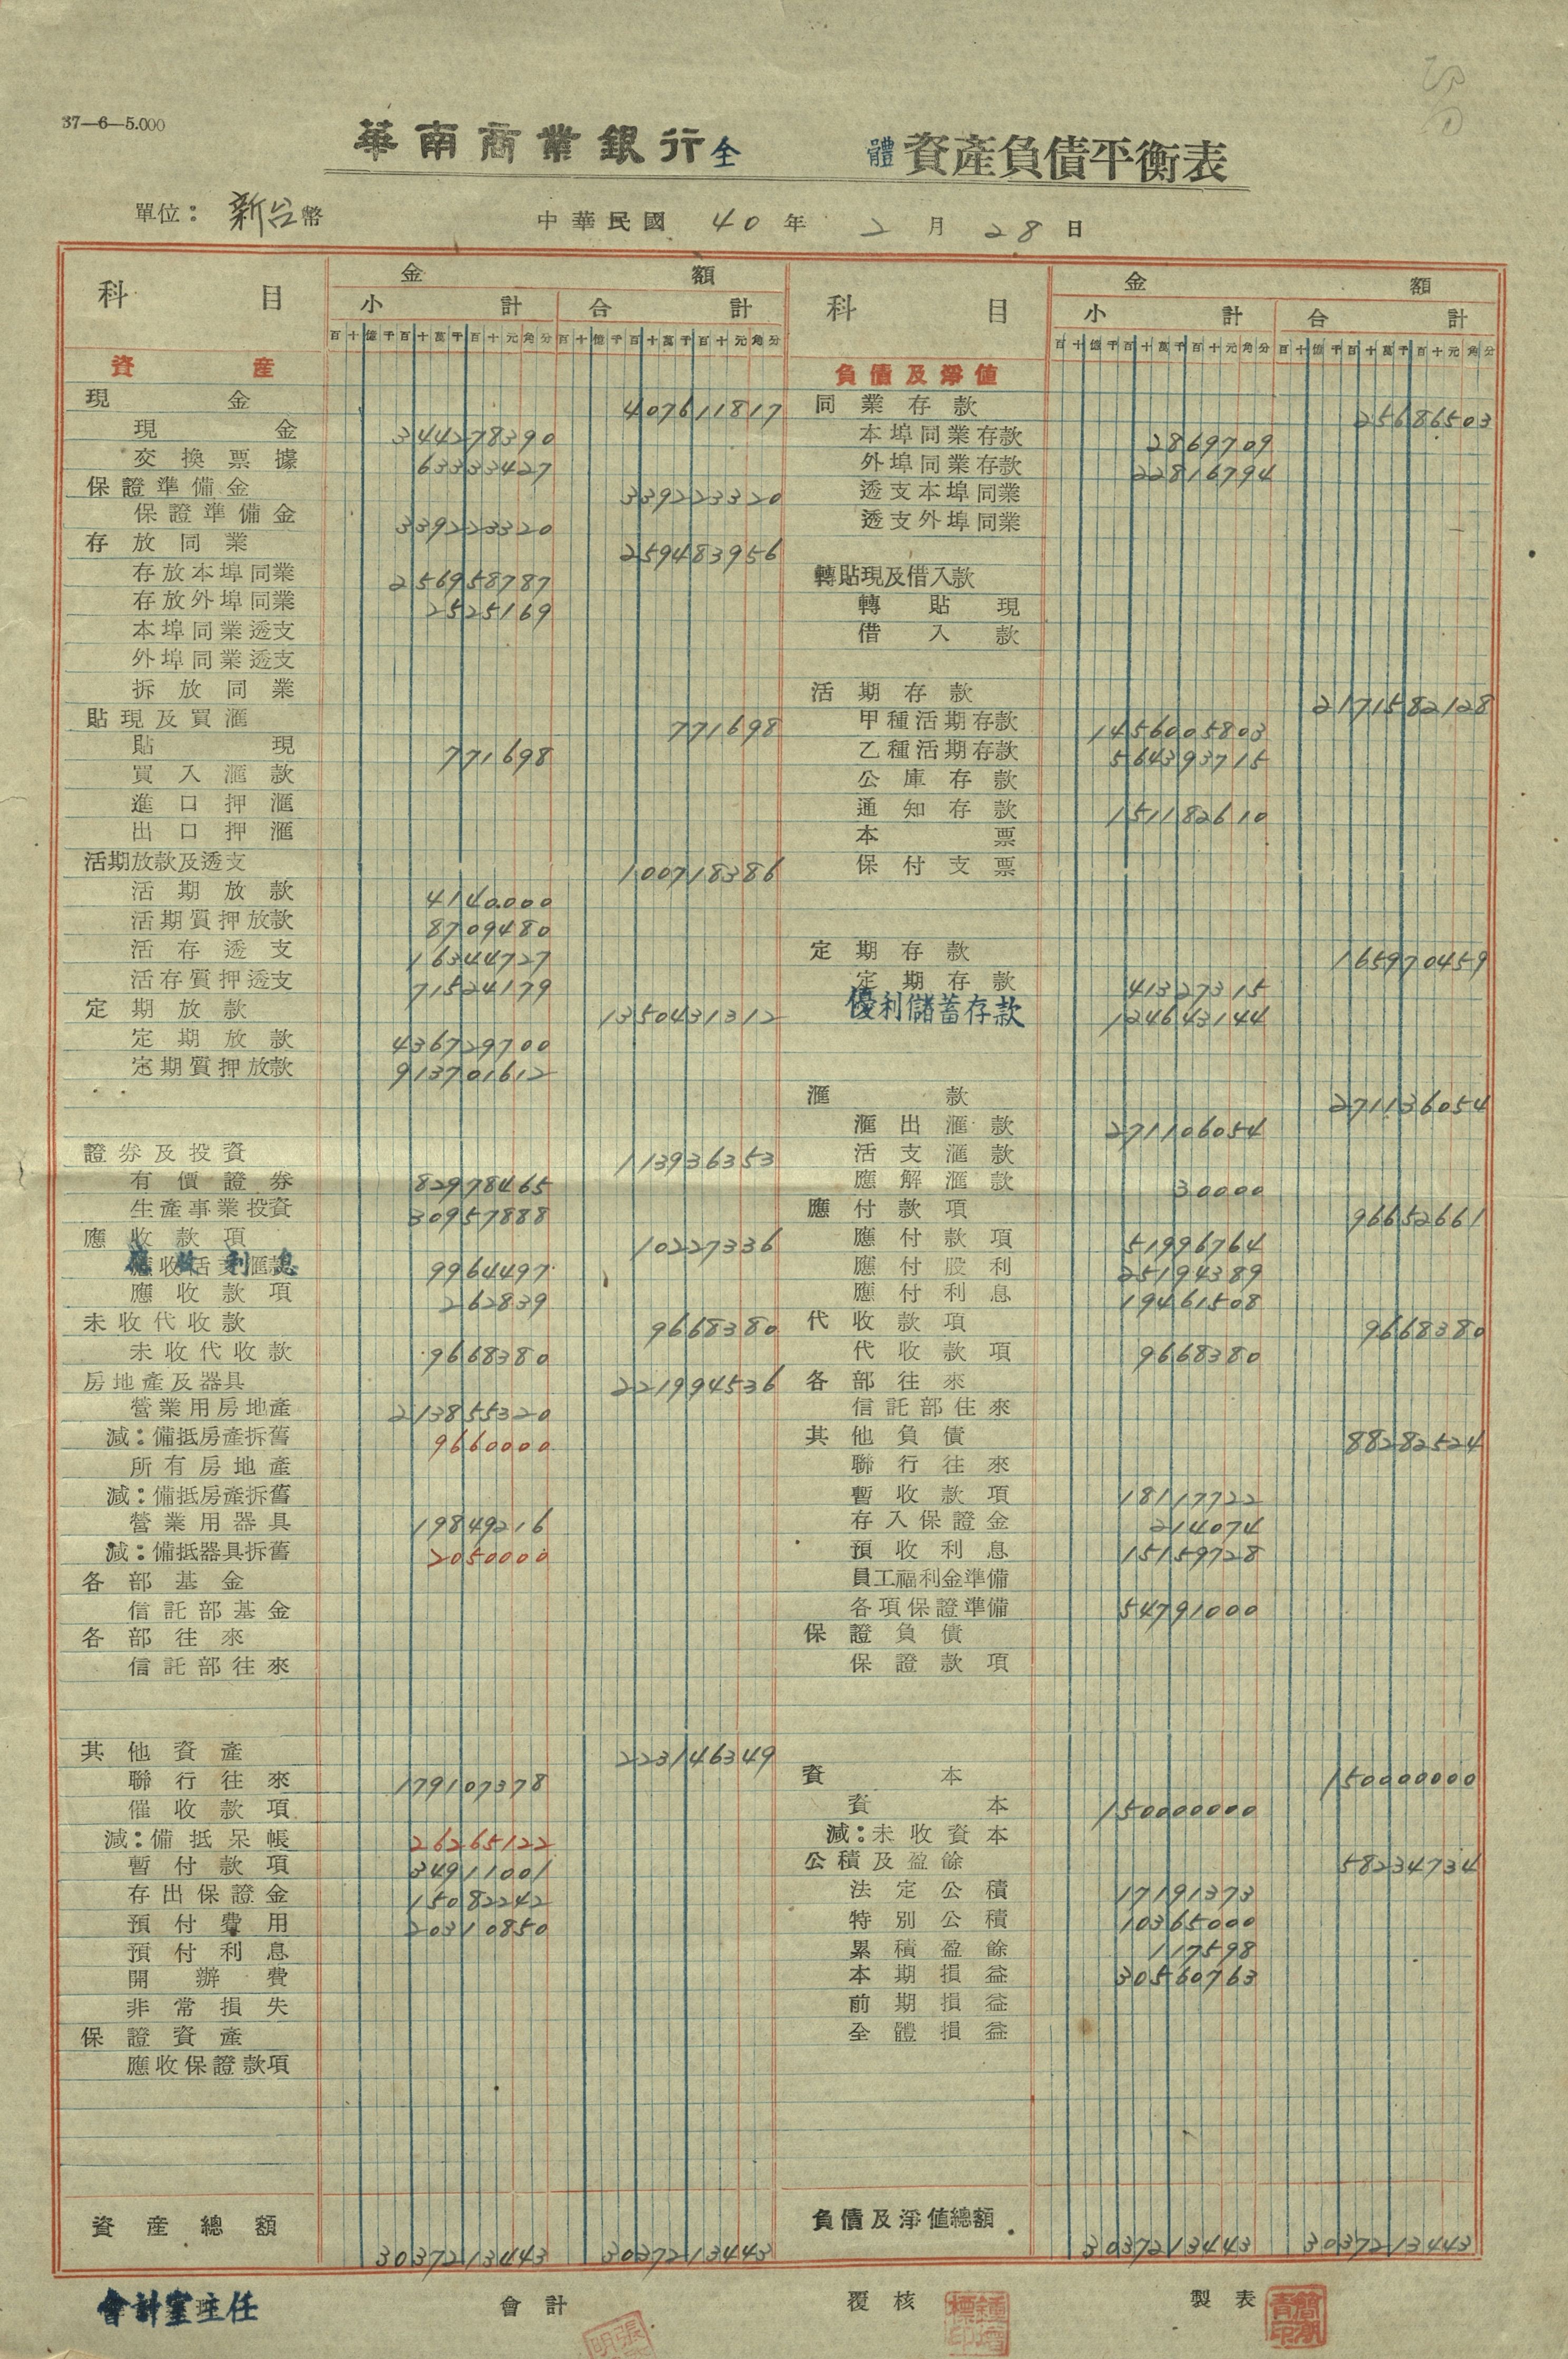 37—6—5.000
華南商業銀行全 體資產負債平衡表
單位：新台幣 中華民國 40 年 2 月 28 日
科 目 金 額
小 計 合 計
百十億千百十萬千百十元角分 百十億千百十萬千百十元角分
資 產
現 金 407611817
現 金 344278390
交換票據 63333427
保證準備金 339223320
保證準備金 339223320
存放同業 259483956
存放本埠同業 256958787
存放外埠同業 2525169
本埠同業透支
外埠同業透支
拆放同業
貼現及買滙 771698
貼 現 771698
買入滙款
進口押滙
出口押滙
活期放款及透支 100718386
活期放款 4140000
活期質押放款 8709480
活存透支 16344727
活存質押透支 71524179
定期放款 1350431312
定期放款 436729700
定期質押放款 913701612
證券及投資 113936353
有價證券 82978465
生產事業投資 30957888
應收款項 10227336
應收利息 9964497
應收款項 262839
未收代收款 9668380
未收代收款 9668380
房地產及器具 221994536
營業用房地產 213855320
減：備抵房產拆舊 9660000
所有房地產
減：備抵房產拆舊
營業用器具 19849216
減：備抵器具拆舊 2050000
各部基金
信託部基金
各部往來
信託部往來
其他資產 223146349
聯行往來 179107378
催收款項
減：備抵呆帳 26265122
暫付款項 34911001
存出保證金 15082242
預付費用 20310850
預付利息
開辦費
非常損失
保證資產
應收保證款項
資產總額 3037213443 3037213443
科 目 金 額
小 計 合 計
百十億千百十萬千百十元角分 百十億千百十萬千百十元角分
負債及淨值
同業存款 25686503
本埠同業存款 2869709
外埠同業存款 22816794
透支本埠同業
透支外埠同業
轉貼現及借入款
轉貼現
借入款
活期存款 2171582128
甲種活期存款 1456005803
乙種活期存款 564393715
公庫存款
通知存款 151182610
本 票
保付支票
定期存款 165970459
定期存款 41327315
優利儲蓄存款 124643144
滙 款 271136054
滙出滙款 271106054
活支滙款
應解滙款 30000
應付款項 96652661
應付款項 51996764
應付股利 25194389
應付利息 19461508
代收款項 9668380
代收款項 9668380
各部往來
信託部往來
其他負債 88282524
聯行往來
暫收款項 18117722
存入保證金 214074
預收利息 15159728
員工福利金準備
各項保證準備 54791000
保證負債
保證款項
資 本 150000000
資 本 150000000
減：未收資本
公積及盈餘 58234734
法定公積 17191373
特別公積 10365000
累積盈餘 117598
本期損益 30560763
前期損益
全體損益
負債及淨值總額 3037213443 3037213443
會計室主任 會計 覆核 製表